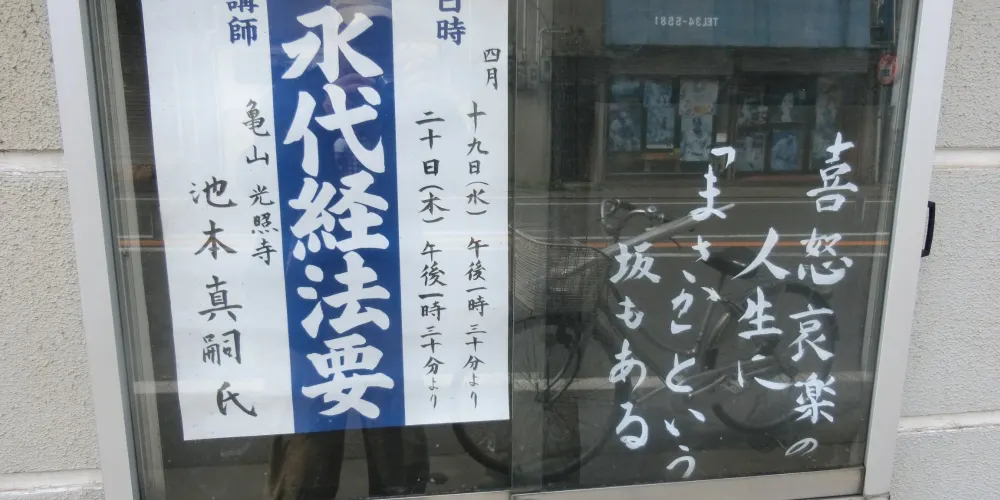 喜怒哀楽の
人生に
「まさか」という
坂もある
日時
四月
十九日(水) 午後一時三十分より
二十日(木) 午後一時三十分より
永代経法要
講師
亀山 光照寺
池本真嗣氏
TEL34-5581